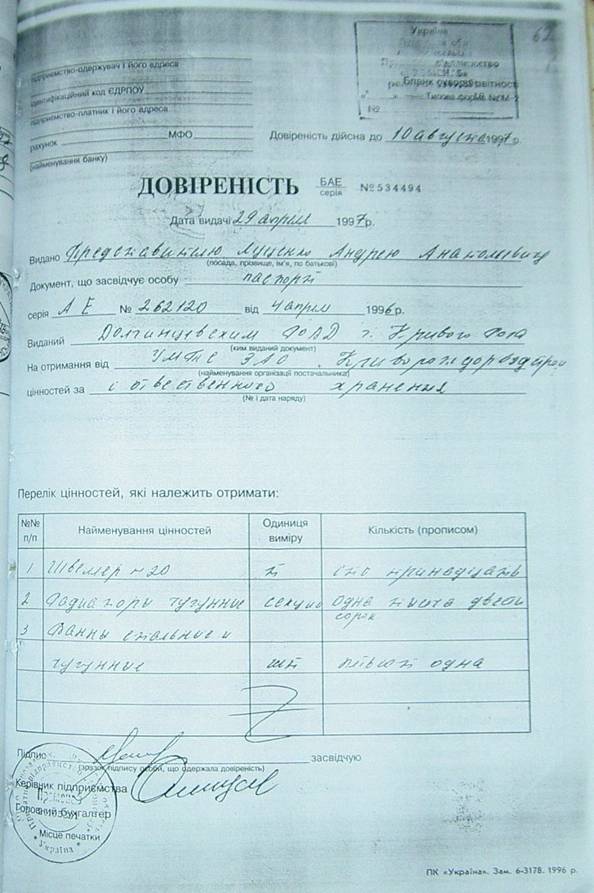 62
Україна
підприємство-одержувач і його адреса
ідентифікаційний код ЄДРПОУ
Бланк суворої звітності
підприємство-платник і його адреса
Типова форма № М-2
№
рахунок МФО
Довіреність дійсна до 10 августа 1997 р.
(найменування банку)
ДОВІРЕНІСТЬ БАЕ № 534494
серія
Дата видачі 29 апреля 1997 р.
Видано Представителю Луценко Андрею Анатольевичу
(посада, прізвище, ім'я, по батькові)
Документ, що засвідчує особу паспорт
серія АЕ № 262120 від 4 апреля 1996 р.
Виданий Долгинцевским РОВД г. Кривого Рога
(ким виданий документ)
На отримання від УМТС ЗАО
(найменування організації постачальника)
цінностей за ответственного хранения
(№ і дата наряду)
Перелік цінностей, які належить отримати:
№№ п/п Найменування цінностей Одиниця виміру Кількість (прописом)
1 Швеллер н 20 т сто тринадцать
2 Радиаторы чугунные секция одна тыща двести сорок
3 Ванны стальные и
чугунные шт одна
Підпис засвідчую
(зразок підпису особи, що одержала довіреність)
Керівник підприємства
Головний бухгалтер
Місце печатки
Україна
ПК «Україна». Зам. 6-3178. 1996 р.